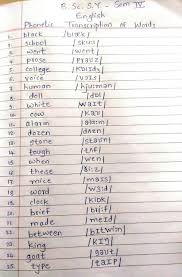 B.Sc. S.Y. - Sem IV
English
Phonetic Transcription of Words
1. black /blæk/
2. school /skuːl/
3. went /went/
4. prose /prəʊz/
5. college /kɒlidʒ/
6. voice /vɔis/
7. human /hjuːmən/
8. doll /dɒl/
9. white /wait/
10. cow /kaʊ/
11. alarm /əlaːm/
12. dozen /dʌzn/
13. stone /stəʊn/
14. tough /tʌf/
15. when /wen/
16. these /ðiːz/
17. mice /mais/
18. word /wɜːd/
19. clock /klɒk/
20. brief /briːf/
21. made /meid/
22. between /bitwiːn/
23. king /kɪŋ/
24. goat /gəʊt/
25. type /taɪp/